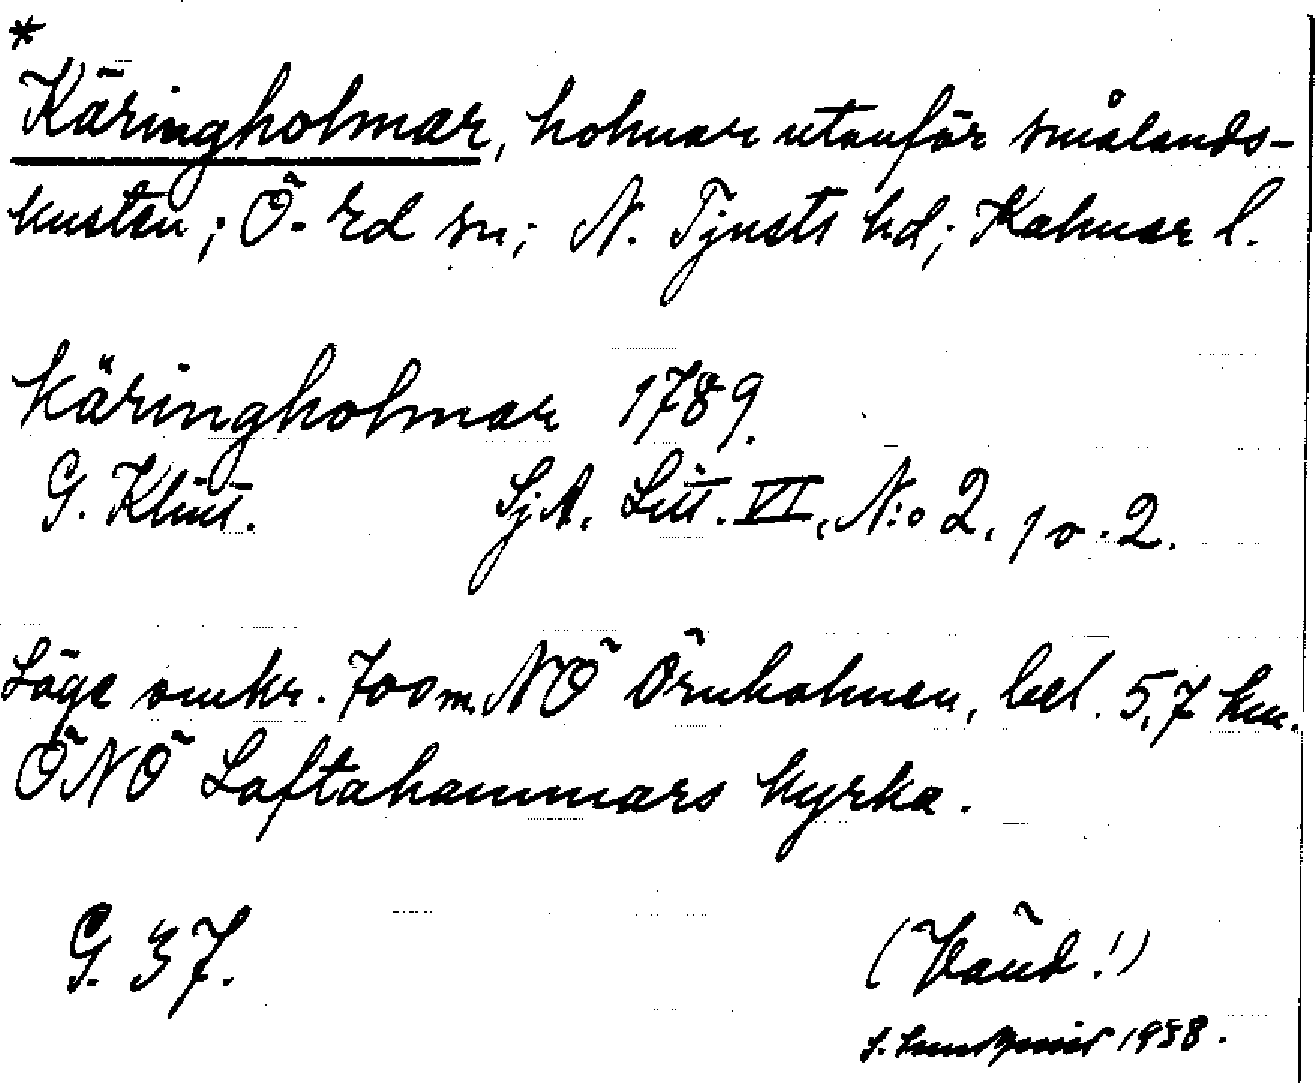 *
Käringholmar, holmar utanför smålands-
kusten; Ö. Ed sn; N. Tjusts hd; Kalmar l.
Käringholmar 1789.
G. Klint. SjA. Litt. VI, N:o 2, 1 o. 2.
Läge omkr. 700 m. NÖ Örnholmen, bel. 5,7 km.
ÖNÖ Loftahammars kyrka.
G. 37. (Vänd!)
S. 1958.